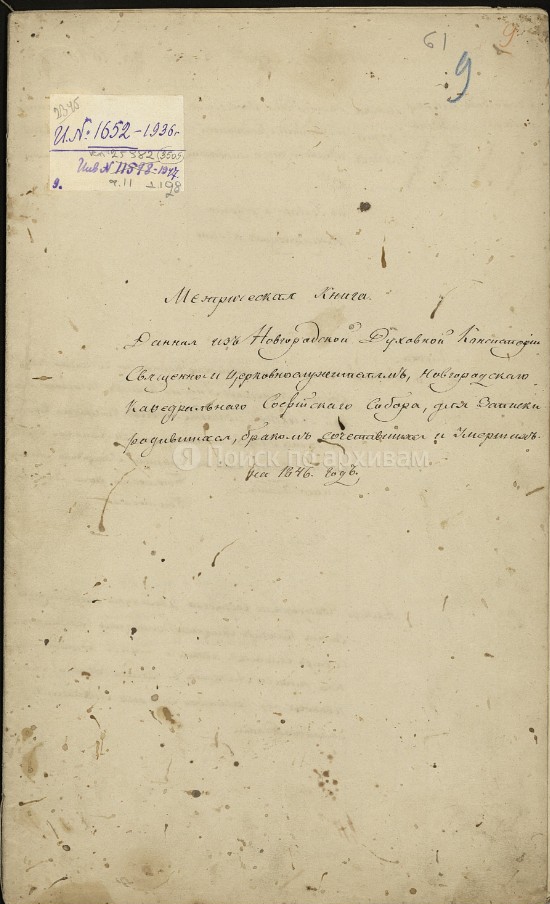 61
9
9
2345
И.№: 1652 - 1936 г
КП 25382 (3505)
Инв № 11598 - 1977.
9. ч. 11 198
Метрическая Книга.
Данная изъ Новгородской Духовной Консисторіи
Священно и Церковнослужителямъ, Новгородскаго
Кафедральнаго Софійскаго Собора, для Записки
родившихся, бракомъ сочетавшихся и Умершихъ.
на 1846. годъ.
Поиск по архивам